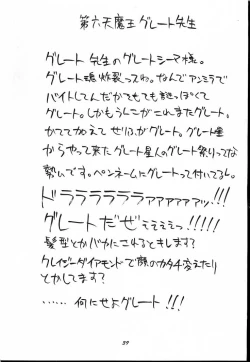 第六天魔王グレート先生
グレート先生のグレートシーマ様。
グレート魂炸裂ってカンジ。なんでアンミラで
バイトしてんだかとてもても謎っぽくて
グレート。しかもうんこがこれまたグレート。
かてて加えてぜりふがグレート。グレート星
からやって来たグレート星人のグレート祭りってな
勢いです。ペンネームにグレートって付いてるし。
ドララララララァァァァァァッ!!!
グレートだぜぇぇぇぇっ!!!!!
髪型とかバカにこれるとキレます?
クレイジーダイアモンドで顔のカタチ変えたり
とかしてます?
……何にせよグレート!!!
59